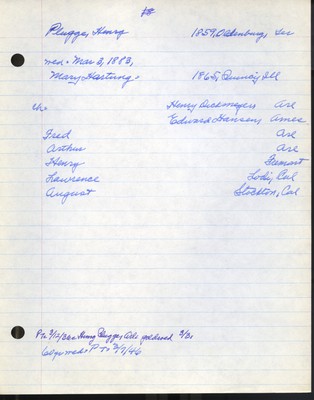 Plugge, Henry 1859, Oldenburg, Ger
md. Mar 3, 1883,
Mary Hartung. 1865, Quincy, Ill
ch. Henry Diedmeyers Arl
Edward Hansens Ames
Fred Arl
Arthur Arl
Henry Fremont
Lawrence Lodi, Cal
August Stockton, Cal
Henry Plugges
60 yr weds P To 3/7/46